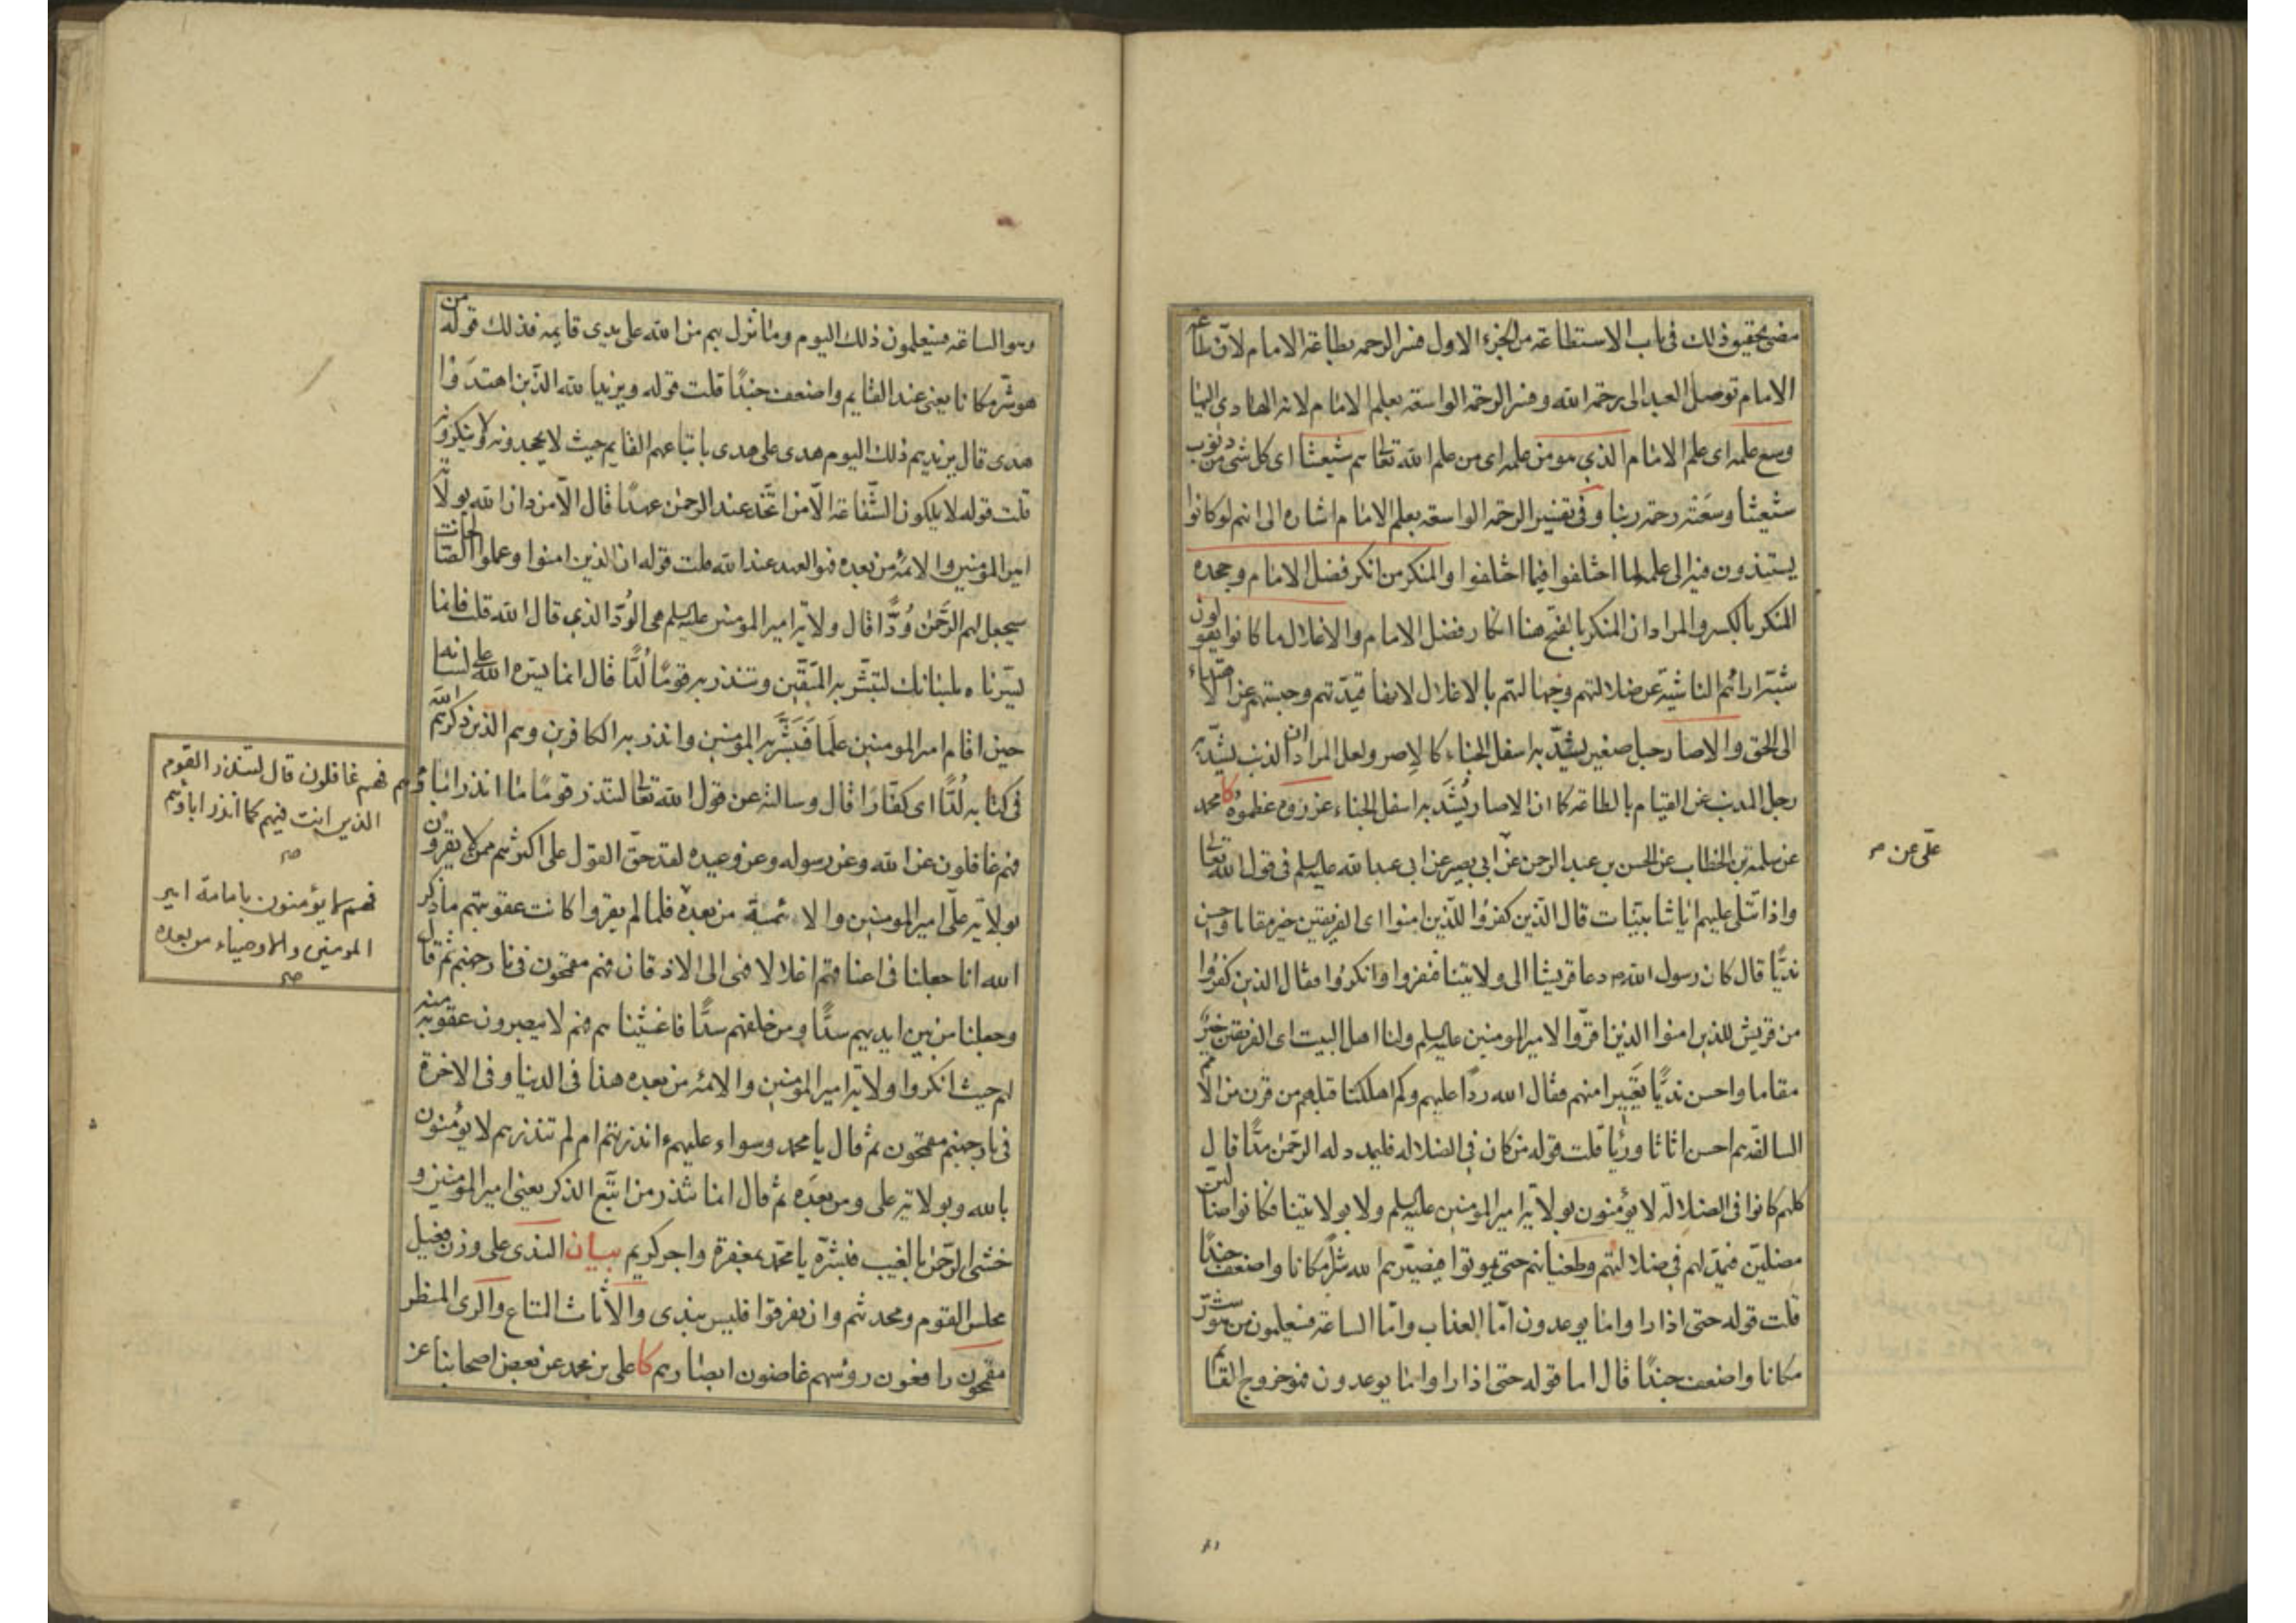 مضى تحقيق ذلك فى باب الاستطاعة من الجزء الاول فسر الرحمه بطاعة الامام لان طاعة
الامام توصل العبد الى رحمة الله وفسر الرحمة الواسعة بعلم الامام لانه الهادى اليها
وسع علمه اى علم الامام الذي هو من علمه اى من علم الله تعالى هم شيعتنا اى كل شئ من ذنوب
شيعتنا وسعته رحمة ربنا وفى تفسير الرحمة الواسعة بعلم الامام اشاره الى انهم لو كانوا
يستندون فيه الى علمه لما اختلفوا فيما اختلفوا والمنكر من انكر فضل الامام وجحده
المنكر بالكسر والمراد ان المنكر بالفتح هنا انكار فضل الامام والاغلال ما كانوا يقولون
شبه ارائهم الناشية عن ضلالتهم وجهالتهم بالاغلال لانها قيدتهم وحبستهم عن الاهتداء
الى الحق والاصار حبل صغير يشد به اسفل الخباء كالاصر ولعل المراد ان الذنب يشد به
رجل المذنب عن القيام بالطاعة كما ان الاصار يشد به اسفل الخباء عزروه عظموه كا محمد
عن سلمة بن الخطاب عن الحسن بن عبد الرحمن عن ابى بصير عن ابى عبد الله عليه السلم فى قول الله تعالى
علي عن صح
واذا تتلى عليهم اياتنا بينات قال الذين كفروا للذين امنوا اى الفريقين خير مقاما واحسن
نديا قال كان رسول الله ص دعا قريشا الى ولايتنا فنفروا وانكروا فقال الذين كفروا
من قريش للذين امنوا الذين اقروا لامير المومنين عليه السلم ولنا اهل البيت اى الفريقين خير
مقاما واحسن نديا تعييرا منهم فقال الله ردا عليهم وكم اهلكنا قبلهم من قرن من الامم
السالفة هم احسن اثاثا ورئيا قلت قوله من كان فى الضلاله فليمدد له الرحمن مدا قال
كلهم كانوا فى الضلالة لا يؤمنون بولاية امير المومنين عليه السلم ولا بولايتنا فكانوا ضالين
مضلين فيمد لهم فى ضلالتهم وطغيانهم حتى يموتوا فيصيرهم الله شرا مكانا واضعف جندا
قلت قوله حتى اذا راوا ما يوعدون اما العذاب واما الساعة فسيعلمون من هو شر
مكانا واضعف جندا قال اما قوله حتى اذا راوا ما يوعدون فهو خروج القائم
وهو الساعة فسيعلمون ذلك اليوم وما نزل بهم من الله على يدى قايمه فذلك قوله من
هو شر مكانا يعنى عند القايم واضعف جندا قلت قوله ويزيد الله الذين اهتدوا
هدى قال يزيدهم ذلك اليوم هدى على هدى باتباعهم القايم حيث لا يجحدونه ولا ينكرونه
قلت قوله لا يملكون الشفاعة الا من اتخذ عند الرحمن عهدا قال الا من دان الله بولاية
امير المومنين والائمة من بعده فهو العهد عند الله قلت قوله ان الذين امنوا وعملوا الصالحات
سيجعل لهم الرحمن ودا قال ولاية امير المومنين عليه السلم هى الود الذي قال الله قلت فانما
يسرناه بلسانك لتبشر به المتقين وتنذر به قوما لدا قال انما يسره الله على لسانه
حين اقام امير المومنين علما فبشر به المومنين وانذر به الكافرين وهم الذين ذكرهم الله
فى كتابه لدا اى كفارا قال وسالته عن قول الله تعالى لتنذر قوما ما انذر اباؤهم
فهم غافلون قال لتنذر القوم
الذين انت فيهم كما انذر اباؤهم
صح
فهم غافلون عن الله وعن رسوله وعن وعيده لقد حق القول على اكثرهم ممن لا يقرون
بولاية على امير المومنين والائمة من بعده فلما لم يقروا كانت عقوبتهم ما ذكر
فهم لا يؤمنون بامامة امير
المومنين والاوصياء من بعده
صح
الله انا جعلنا فى اعناقهم اغلالا فهى الى الاذقان فهم مقمحون فى نار جهنم ثم قال
وجعلنا من بين ايديهم سدا ومن خلفهم سدا فاغشيناهم فهم لا يبصرون عقوبة منه
لهم حيث انكروا ولاية امير المومنين والائمه من بعده هذا فى الدنيا وفى الاخرة
فى نار جهنم مقمحون ثم قال يا محمد وسواء عليهم ءانذرتهم ام لم تنذرهم لا يؤمنون
بالله وبولاية على ومن بعده ثم قال انما تنذر من اتبع الذكر يعنى امير المومنين و
خشى الرحمن بالغيب فبشره يا محمد بمغفرة واجر كريم بيان الندى على وزن فعيل
مجلس القوم ومحدثهم وان تفرقوا فليس بندى والاثاث المتاع والرى المنظر
مقمحون رافعون روسهم غاضون ابصارهم كا على بن محمد عن بعض اصحابنا عن